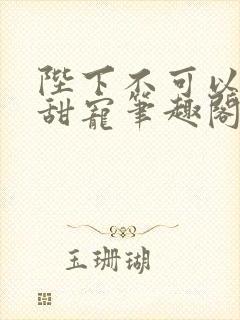 陛下不可以
甜寵筆趣閣
玉珊瑚